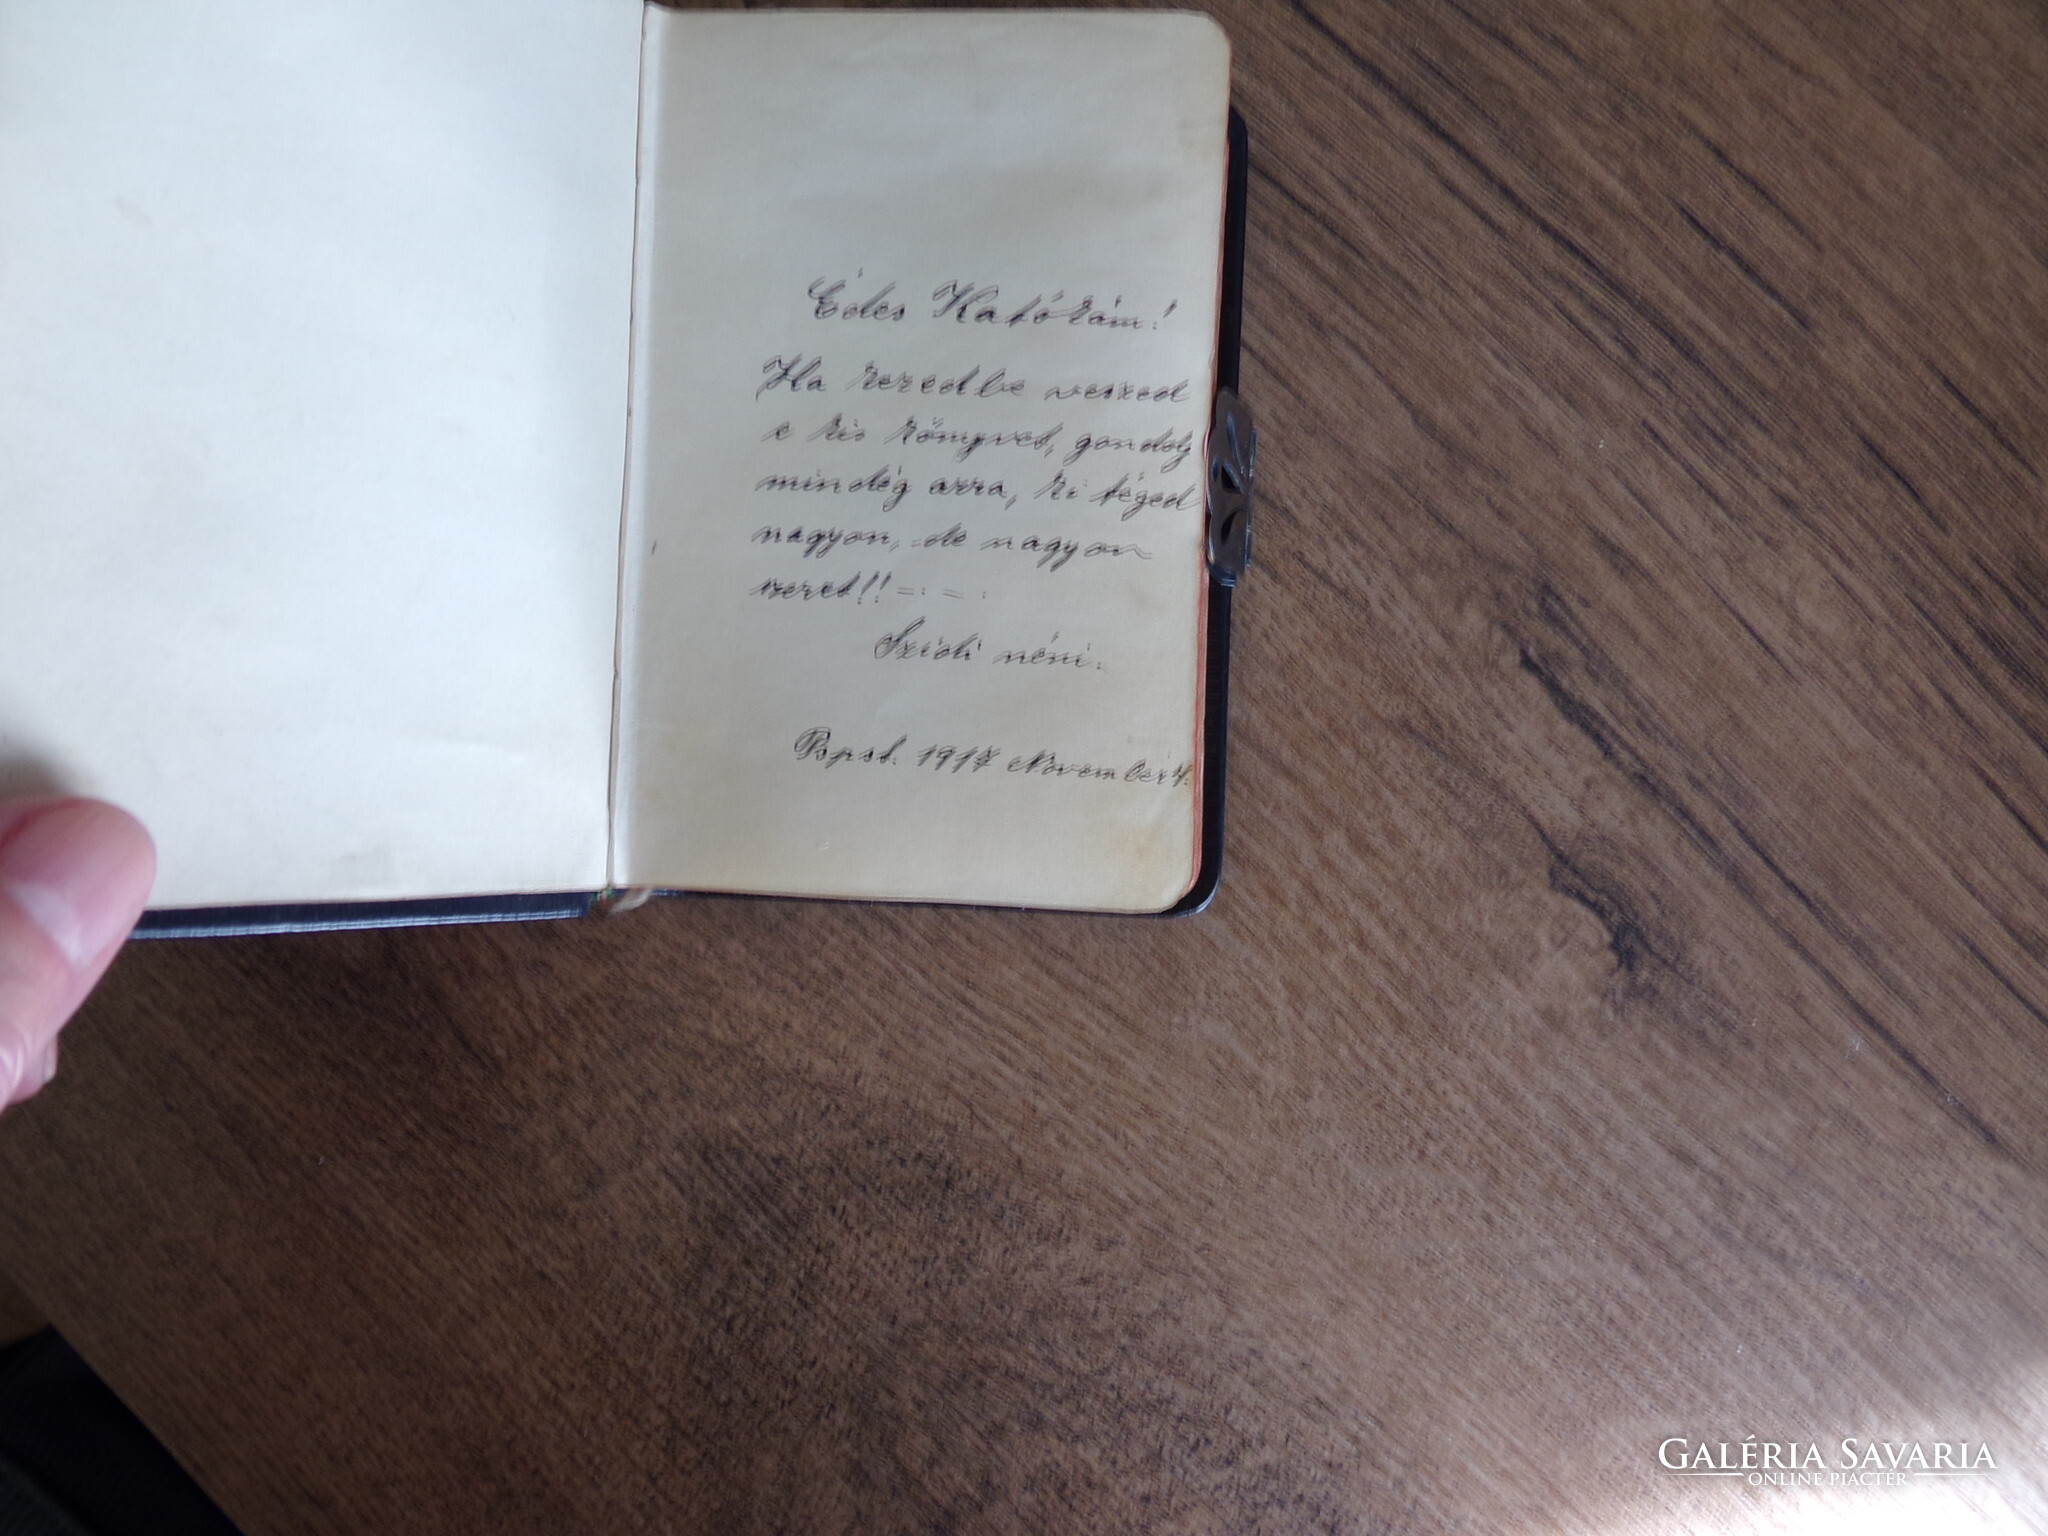 Édes Katókám!
Ha kezedbe veszed
e kis könyvet, gondolj
mindég arra, ki téged
nagyon, de nagyon
szeret!! =.=.
Szidi néni.
Bpest. 1917 November 4.
GALÉRIA SAVARIA
ONLINE PIACTÉR